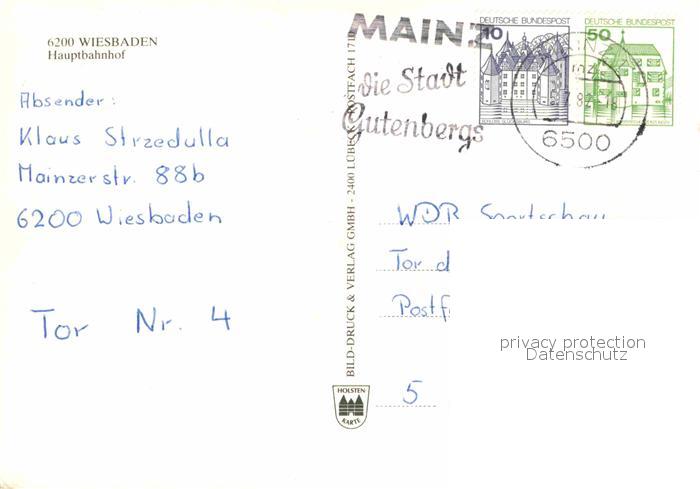 6200 WIESBADEN
Hauptbahnhof
Absender:
Klaus Strzedulla
Mainzerstr. 88b
6200 Wiesbaden
Tor Nr. 4
BILD-DRUCK & VERLAG GMBH - 2400 LÜBECK POSTFACH 171
HOLSTEN-
KARTE
MAINZ
die Stadt
Gutenbergs
DEUTSCHE BUNDESPOST
10
DEUTSCHE BUNDESPOST
50
6500
WDR Sportschau
Tor d
Postf
5
privacy protection
Datenschutz